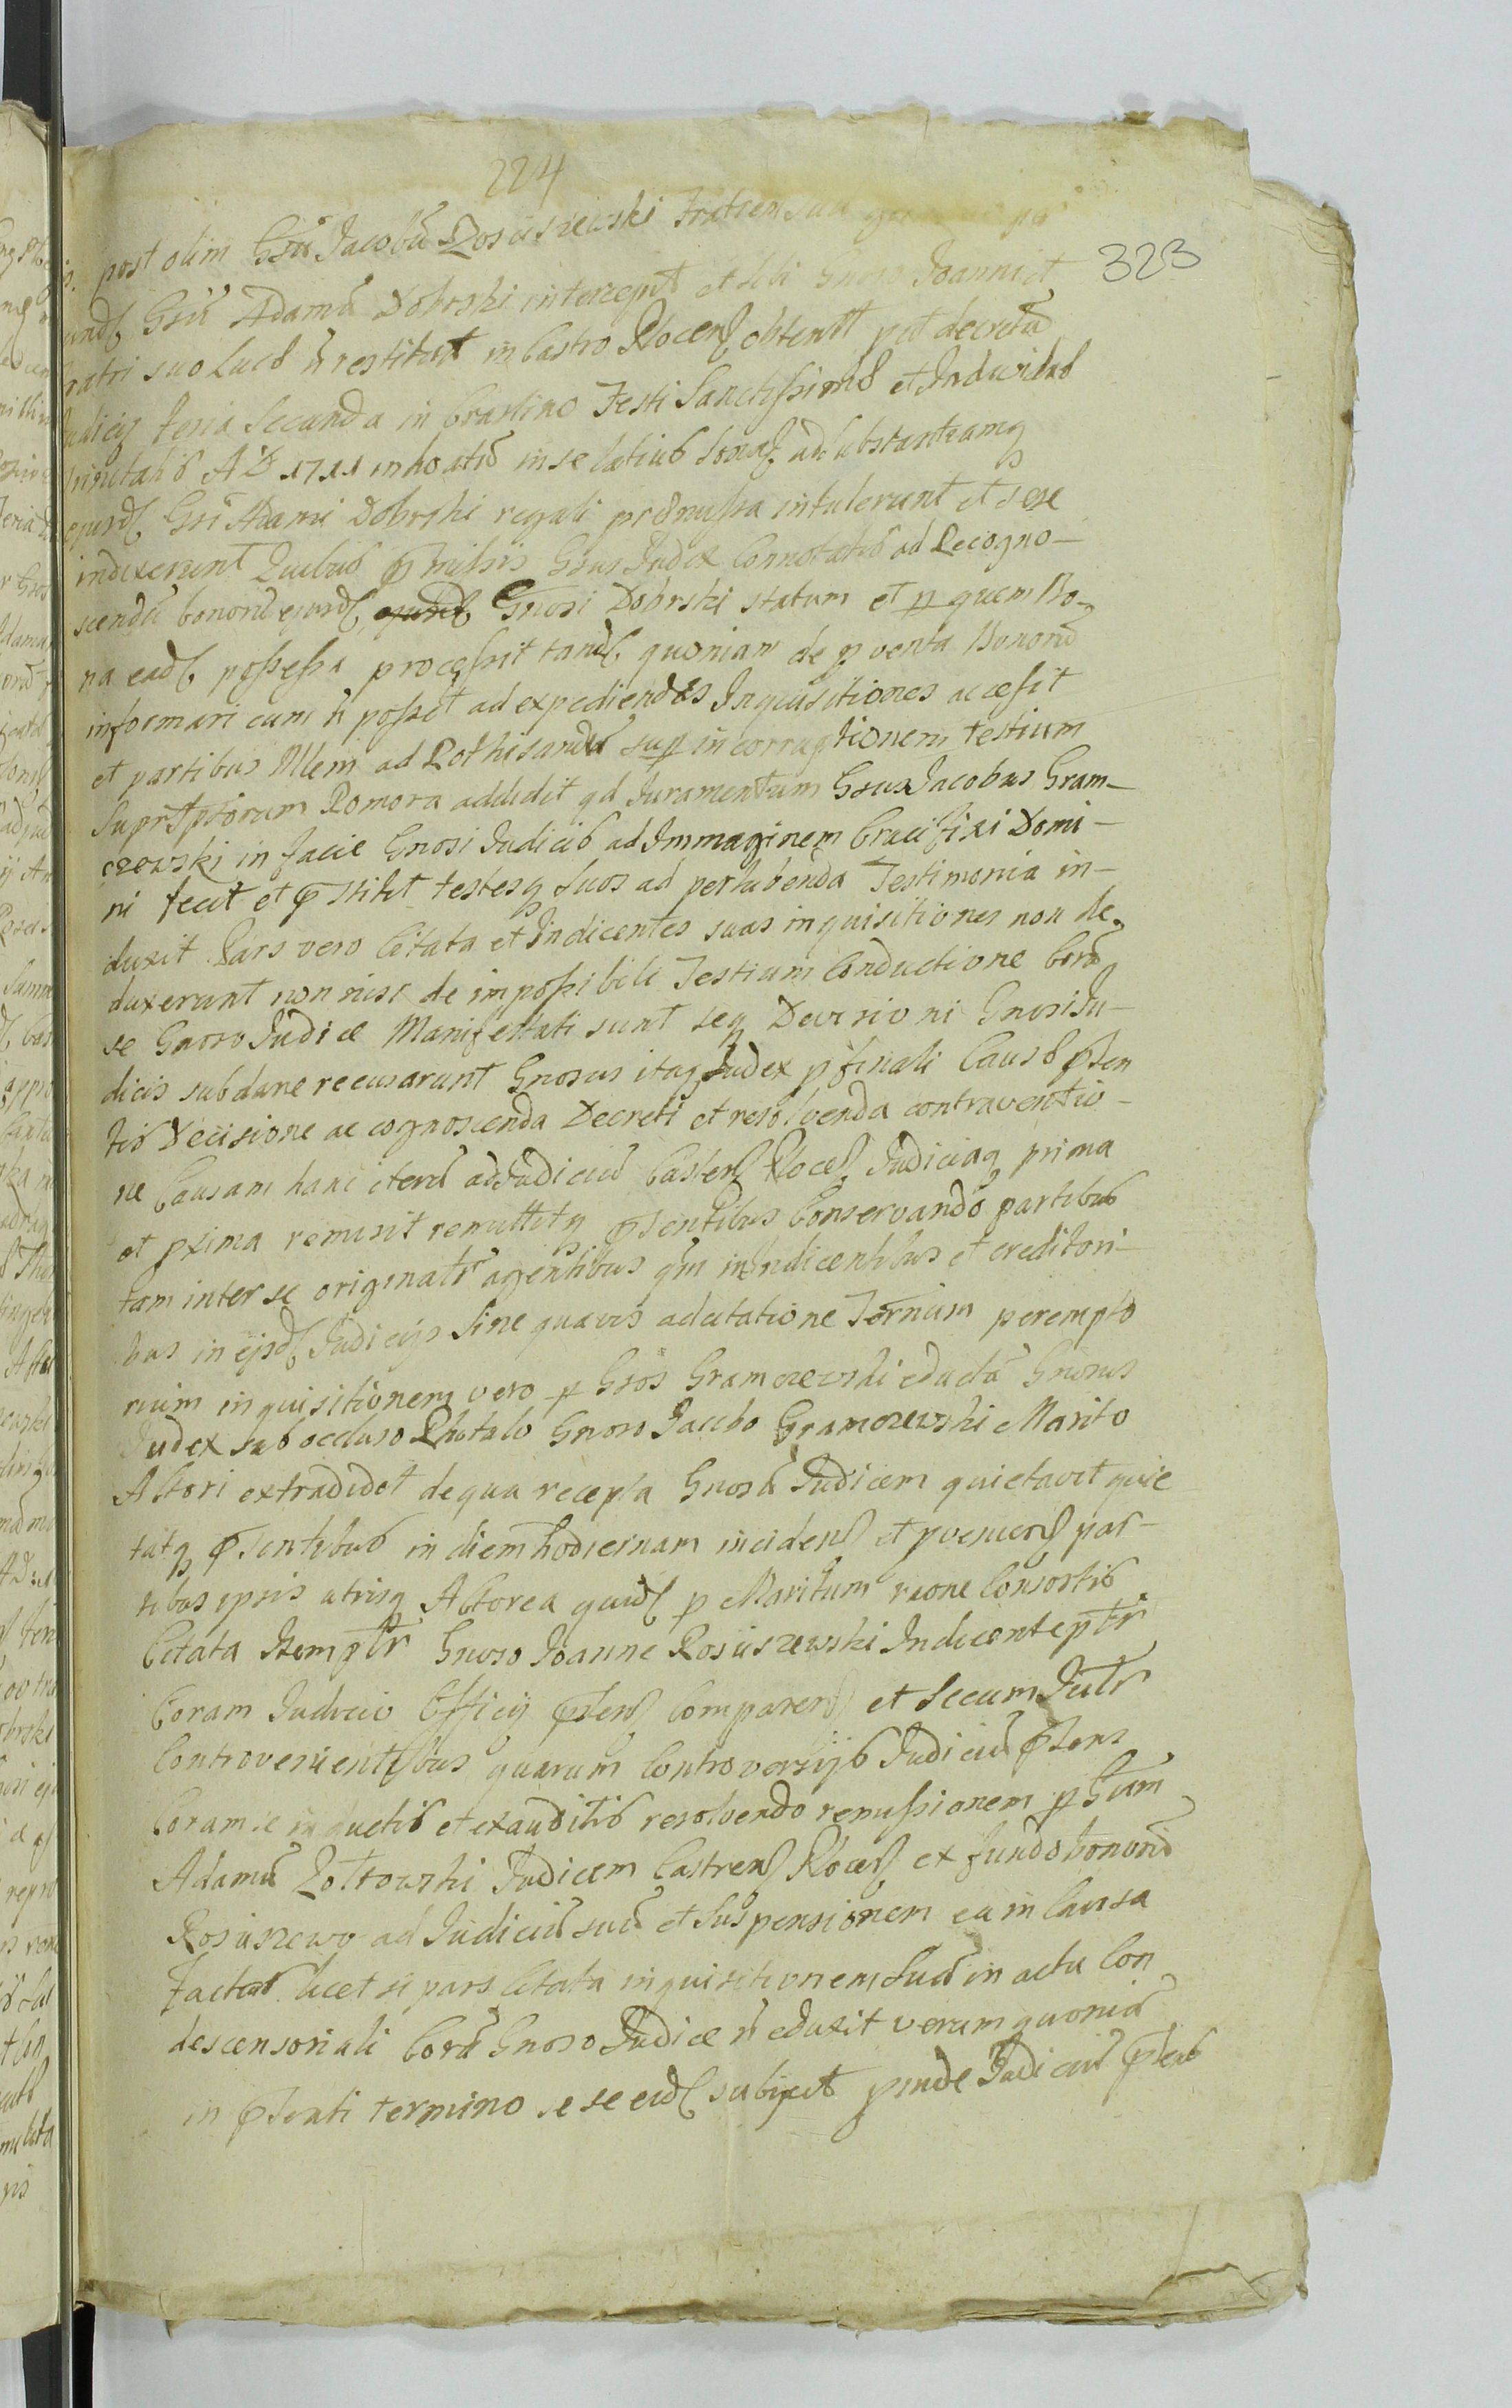 224
323
post olim Gsũ Jacobũ Rosciszewski Fratrem suũ
Gsũ Adamũ Dobrski intercept et sibi Gnoso Joanni et
fratri suo Luca ñ restituit in Castro Plocen obtent p̱ decretũ
Judicij Feria Secunda in Crastino Festi Sanctissimæ et Individuæ
Trinitatis A D 1711 inhoatũ in se latius sonan ad substantiamq
ejusd Gsi Adami Dobrski regali præmissa intulerunt et sese
indixerunt Quibus præmissis Gsus Judex Connotatus ad Recogno-
scendũ bonorũ ejusd ejusd Gnosi Dobrski statum et p̱ quem Bo-
na ead possessa processit tand quoniam de p̱venta Bonorũ
informari cum ñ posset ad expediendas Inquisitiones accessit
et partibus Illem ad Rothisandũ sup̱ in corruptionem testium
Supr̃ptorum Romora addidit qd Juramentum Gsus Jacobus Gram-
czewski in facie Gnosi Judicis ad Immaginem Crucifixi Domi-
ni fecit et p̃stitit testesq suos ad perhibenda Testimonia in-
duxit Pars vero Citata et Indicentes suas inquisitiones non de-
duxerunt non nisi de impossibili Testium Conductione Corã
se Gnoso Judice Manifestati sunt seq Decisioni Gnosi Ju-
dicis subdare recusarunt Gnosus itaq Judex p̱ finali Causæ p̃sen
tis Decisione ac cognoscenda Decreti et resolvenda contraventio-
ne Causam hanc iterũ ad Judiciũ Castren Plocen Judiciaq prima
et pxima remisit remittitq p̃sentibus Conservando partibus
tam inter se originatr̃ agentibus qm in Indicentibus et creditori-
bus in ejsd Judicijs sine quavis adcitatione Ternum perempto
rium inquisitionem vero p̱ Gsos Gramczewski eductã Gnosus
Judex sub occluso Rhotulo Gnoso Jacobo Gramczewski Marito
Actori extradidit de qua recepta Gnosũ Judicem quietavit quie
tatq p̃sentibus in diem hodiernam inciden et pvenien par-
tibus ipsis utrisq Actorea quid p Maritum raone Consortis
Citata Itemptr̃ Gnoso Joanne Rosciszewski Indicente ptr̃
Coram Judicio Officij p̃sen Comparen et Secum Jutr̃
Controvenientibus quarum Controversijs Judiciũ p̃sens
Coram se inductis et exauditis resolvendo remissionem p̱ Gsum
Adamũ Zoltowski Judicem Castren Plocen ex fundo bonorũ
Rosciszewo ad Judiciũ suũ et Suspensionem ea in Causa
factas licet si pars Citata inquisitionem suã in actu Con
descensoriali Corã Gnoso Judice ñ eduxit verum quoniã
in p̃senti termino se se eid subijcit pinde Judiciũ p̃sens